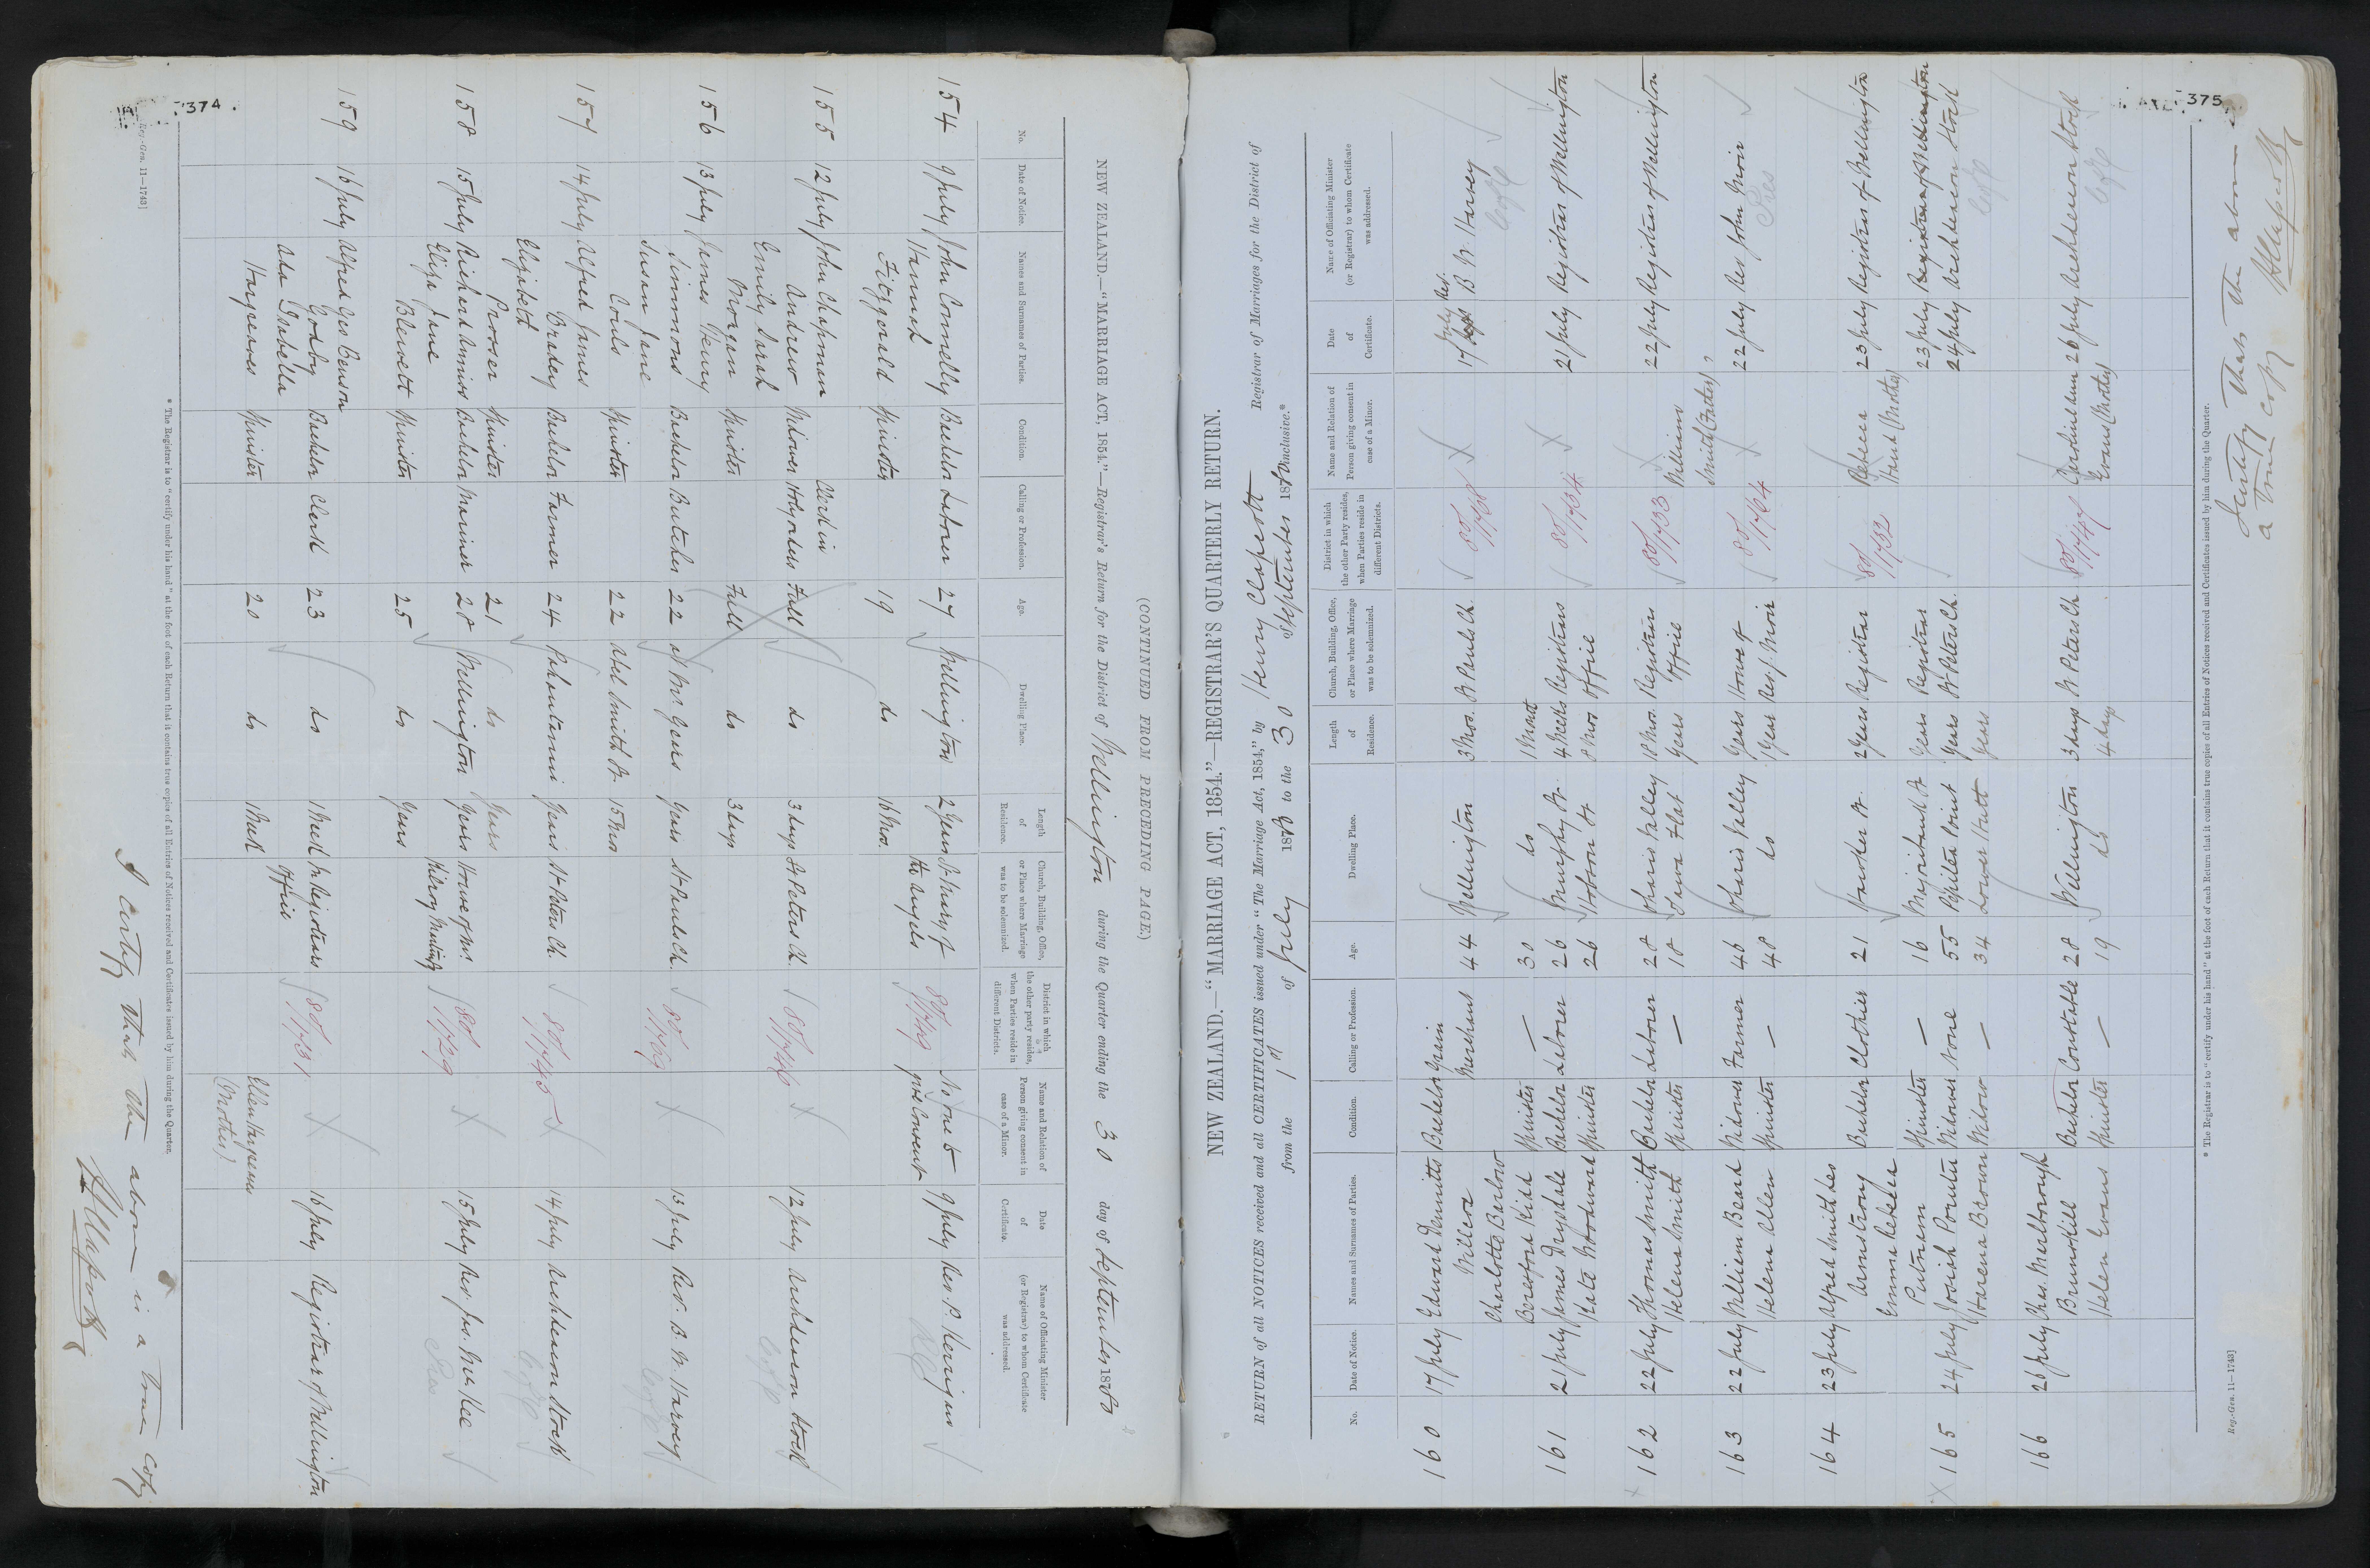 374
(CONTINUED FROM PRECEDING PAGE.)
NEW ZEALAND.—"MARRIAGE ACT, 1854."—Registrar's Return for the District of Wellington during the Quarter ending the 30 day of September 1880
No. Date of Notice. Names and Surnames of Parties. Condition. Calling or Profession. Age. Dwelling Place. Length of Residence. Church, Building, Office, or Place where Marriage was to be solemnized. District in which the other party resides, when Parties reside in different Districts. Name and Relation of Person giving consent in case of a Minor. Date of Certificate. Name of Officiating Minister (or Registrar) to whom Certificate was addressed.
154 9 July John Connelly Bachelor Laborer 27 Wellington 2 years St Mary of the Angels 80/1749 No one to give Consent 9 July Rev. P. Kerrigan
Hannah Fitzgerald Spinster 19 do 16 Mos. RC
155 12 July John Chapman Andrew Widower Clerk in Holy orders Full do 3 days St Peters Ch. 80/1746 X 12 July Archdeacon Stock
Emily Sarah Morgan Spinster Full do 3 days C of E
156 13 July James Henry Simmons Bachelor Butcher 22 at Mr Gears years St Pauls Ch. X 13 July Rev. B. W. Harvey
Susan Jane Couls Spinster 22 Abel Smith St. 15 Mos C of E
157 14 July Alfred James Bradey Bachelor Farmer 24 Pahautanui years St Peters Ch. 80/1745 X 14 July Archdeacon Stock
Elizabeth Prosser Spinster 21 do years C of E
158 15 July Richard Amios Bachelor Mariner 28 Wellington years House of Mr. 80/1729 X 15 July Rev. Jas. McKee
Eliza Jane Blewett Spinster 25 do years Pres
159 16 July Alfred Geo Benson Godby Bachelor Clerk 23 do 1 Week Registrars Office 80/1731 X 16 July Registrar of Wellington
Ada Isabella Hargeaves Spinster 20 do 1 Week Ellen Hargeaves (Mother)
* The Registrar is to "certify under his hand" at the foot of each Return that it contains true copies of all Entries of Notices received and Certificates issued by him during the Quarter.
Reg.-Gen. 11—1743]
I certify that the above is a true copy
375
NEW ZEALAND.—"MARRIAGE ACT, 1854."—REGISTRAR'S QUARTERLY RETURN.
RETURN of all NOTICES received and all CERTIFICATES issued under "The Marriage Act, 1854," by Henry Clapcott Registrar of Marriages for the District of
from the 1st of July 1880 to the 30 September 1880 inclusive.*
No. Date of Notice. Names and Surnames of Parties. Condition. Calling or Profession. Age. Dwelling Place. Length of Residence. Church, Building, Office, or Place where Marriage was to be solemnized. District in which the other Party resides, when Parties reside in different Districts. Name and Relation of Person giving consent in case of a Minor. Date of Certificate. Name of Officiating Minister (or Registrar) to whom Certificate was addressed.
160 17 July Edward Dennitts Willcox Bachelor Grain Merchant 44 Wellington 3 Mos. St Pauls Ch. X 17 July Rev. B W. Harvey
Charlotte Barlow Beresford Kidd Spinster — 30 do 1 Month C of E
161 21 July James Drysdale Bachelor Laborer 26 Murphy St. 4 Weeks Registrars Office 80/1734 X 21 July Registrar of Wellington
Kate Woodward Spinster 26 Hobson St 8 Mos
162 22 July Thomas Smith Bachelor Laborer 28 Oharis Valley 18 Mos. Registrars Office 80/1733 X 22 July Registrar of Wellington
Helena Smith Spinster — 18 Tawa Flat years William Smith (Father)
163 22 July William Beard Widower Farmer 46 Oharis Valley years House of Rev J. Moir 80/1764 X 22 July Rev John Moir
Helena Allen Spinster — 48 do 1 year Pres
164 23 July Alfred Smith Les Armstrong Bachelor Clothier 21 Hawker St. 2 years Registrar 80/1732 23 July Registrar of Wellington
Emma Rebecca Putnam Spinster — 16 Majoribank St years Registrar Rebecca Hand (Mother) 23 July Registrar of Wellington
165 24 July Josiah Pointer Widower None 55 years St Peters Ch. 24 July Archdeacon Stock
Harena Brown Widow — 34 Lower Hutt years C of E
166 26 July Chas. Marlborough Brunskill Bachelor Constable 28 Wellington 3 days St Peters Ch 80/1747 26 July Archdeacon Stock
Helen Evans Spinster — 19 do 4 days Evans (Mother) C of E
* The Registrar is to "certify under his hand" at the foot of each Return that it contains true copies of all Entries of Notices received and Certificates issued by him during the Quarter.
Reg.-Gen. 11—1743]
I certify that the above a true copy
HClapcott